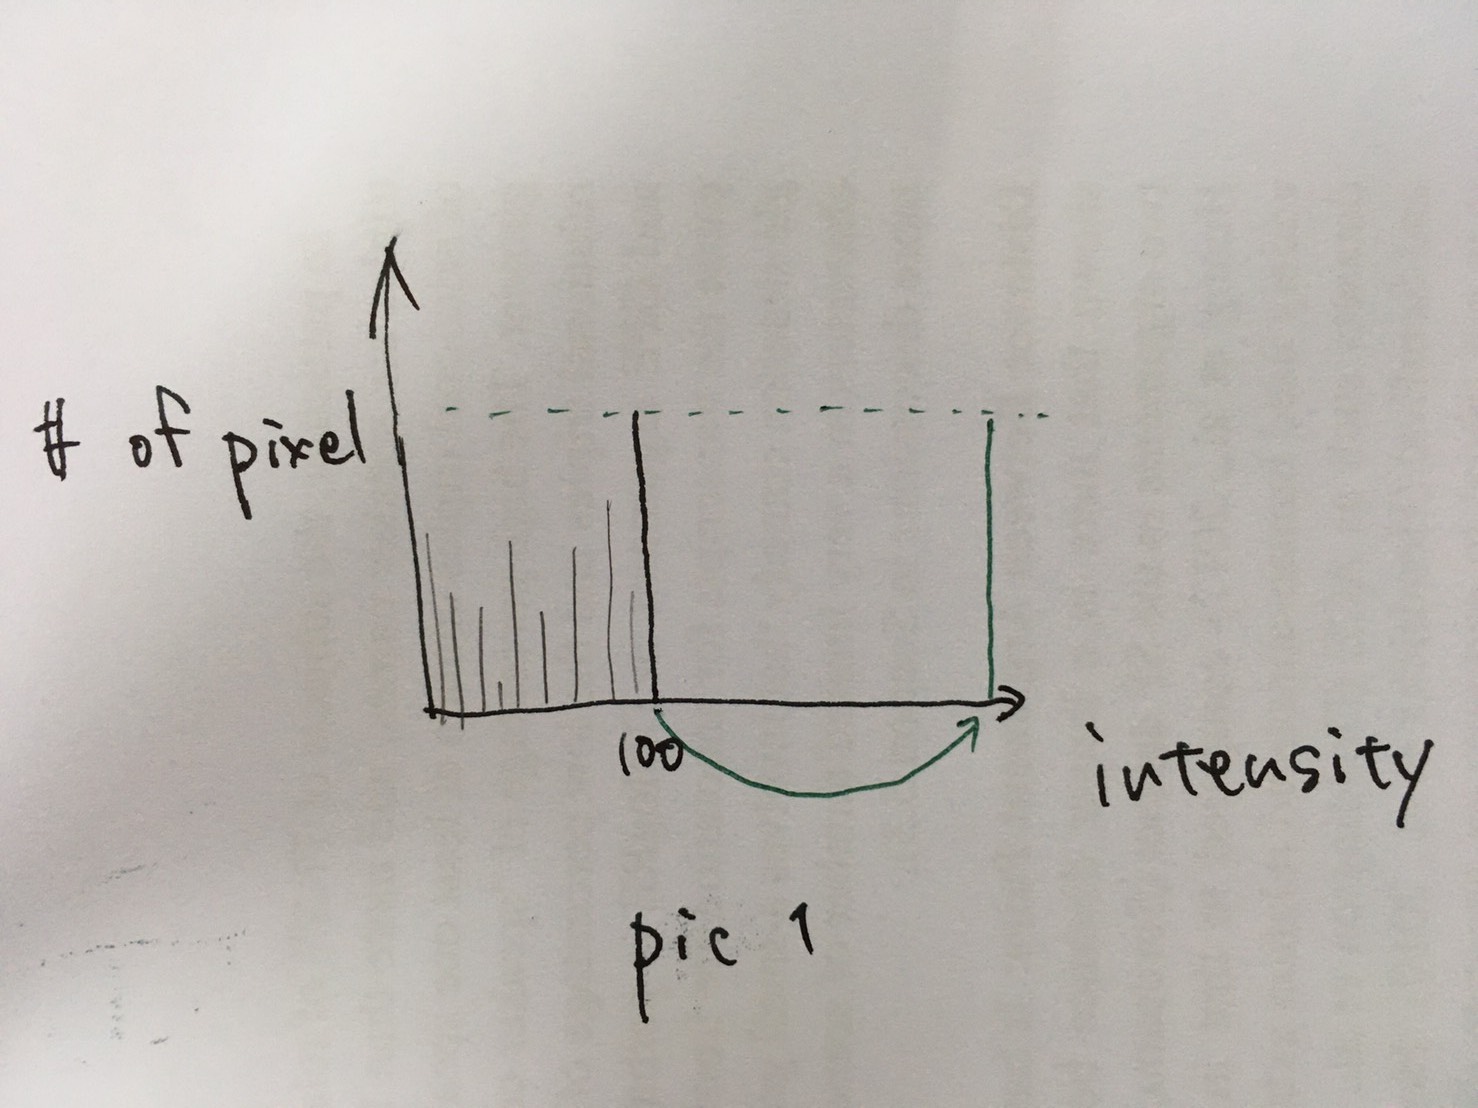 # of pixel
100
intensity
pic 1